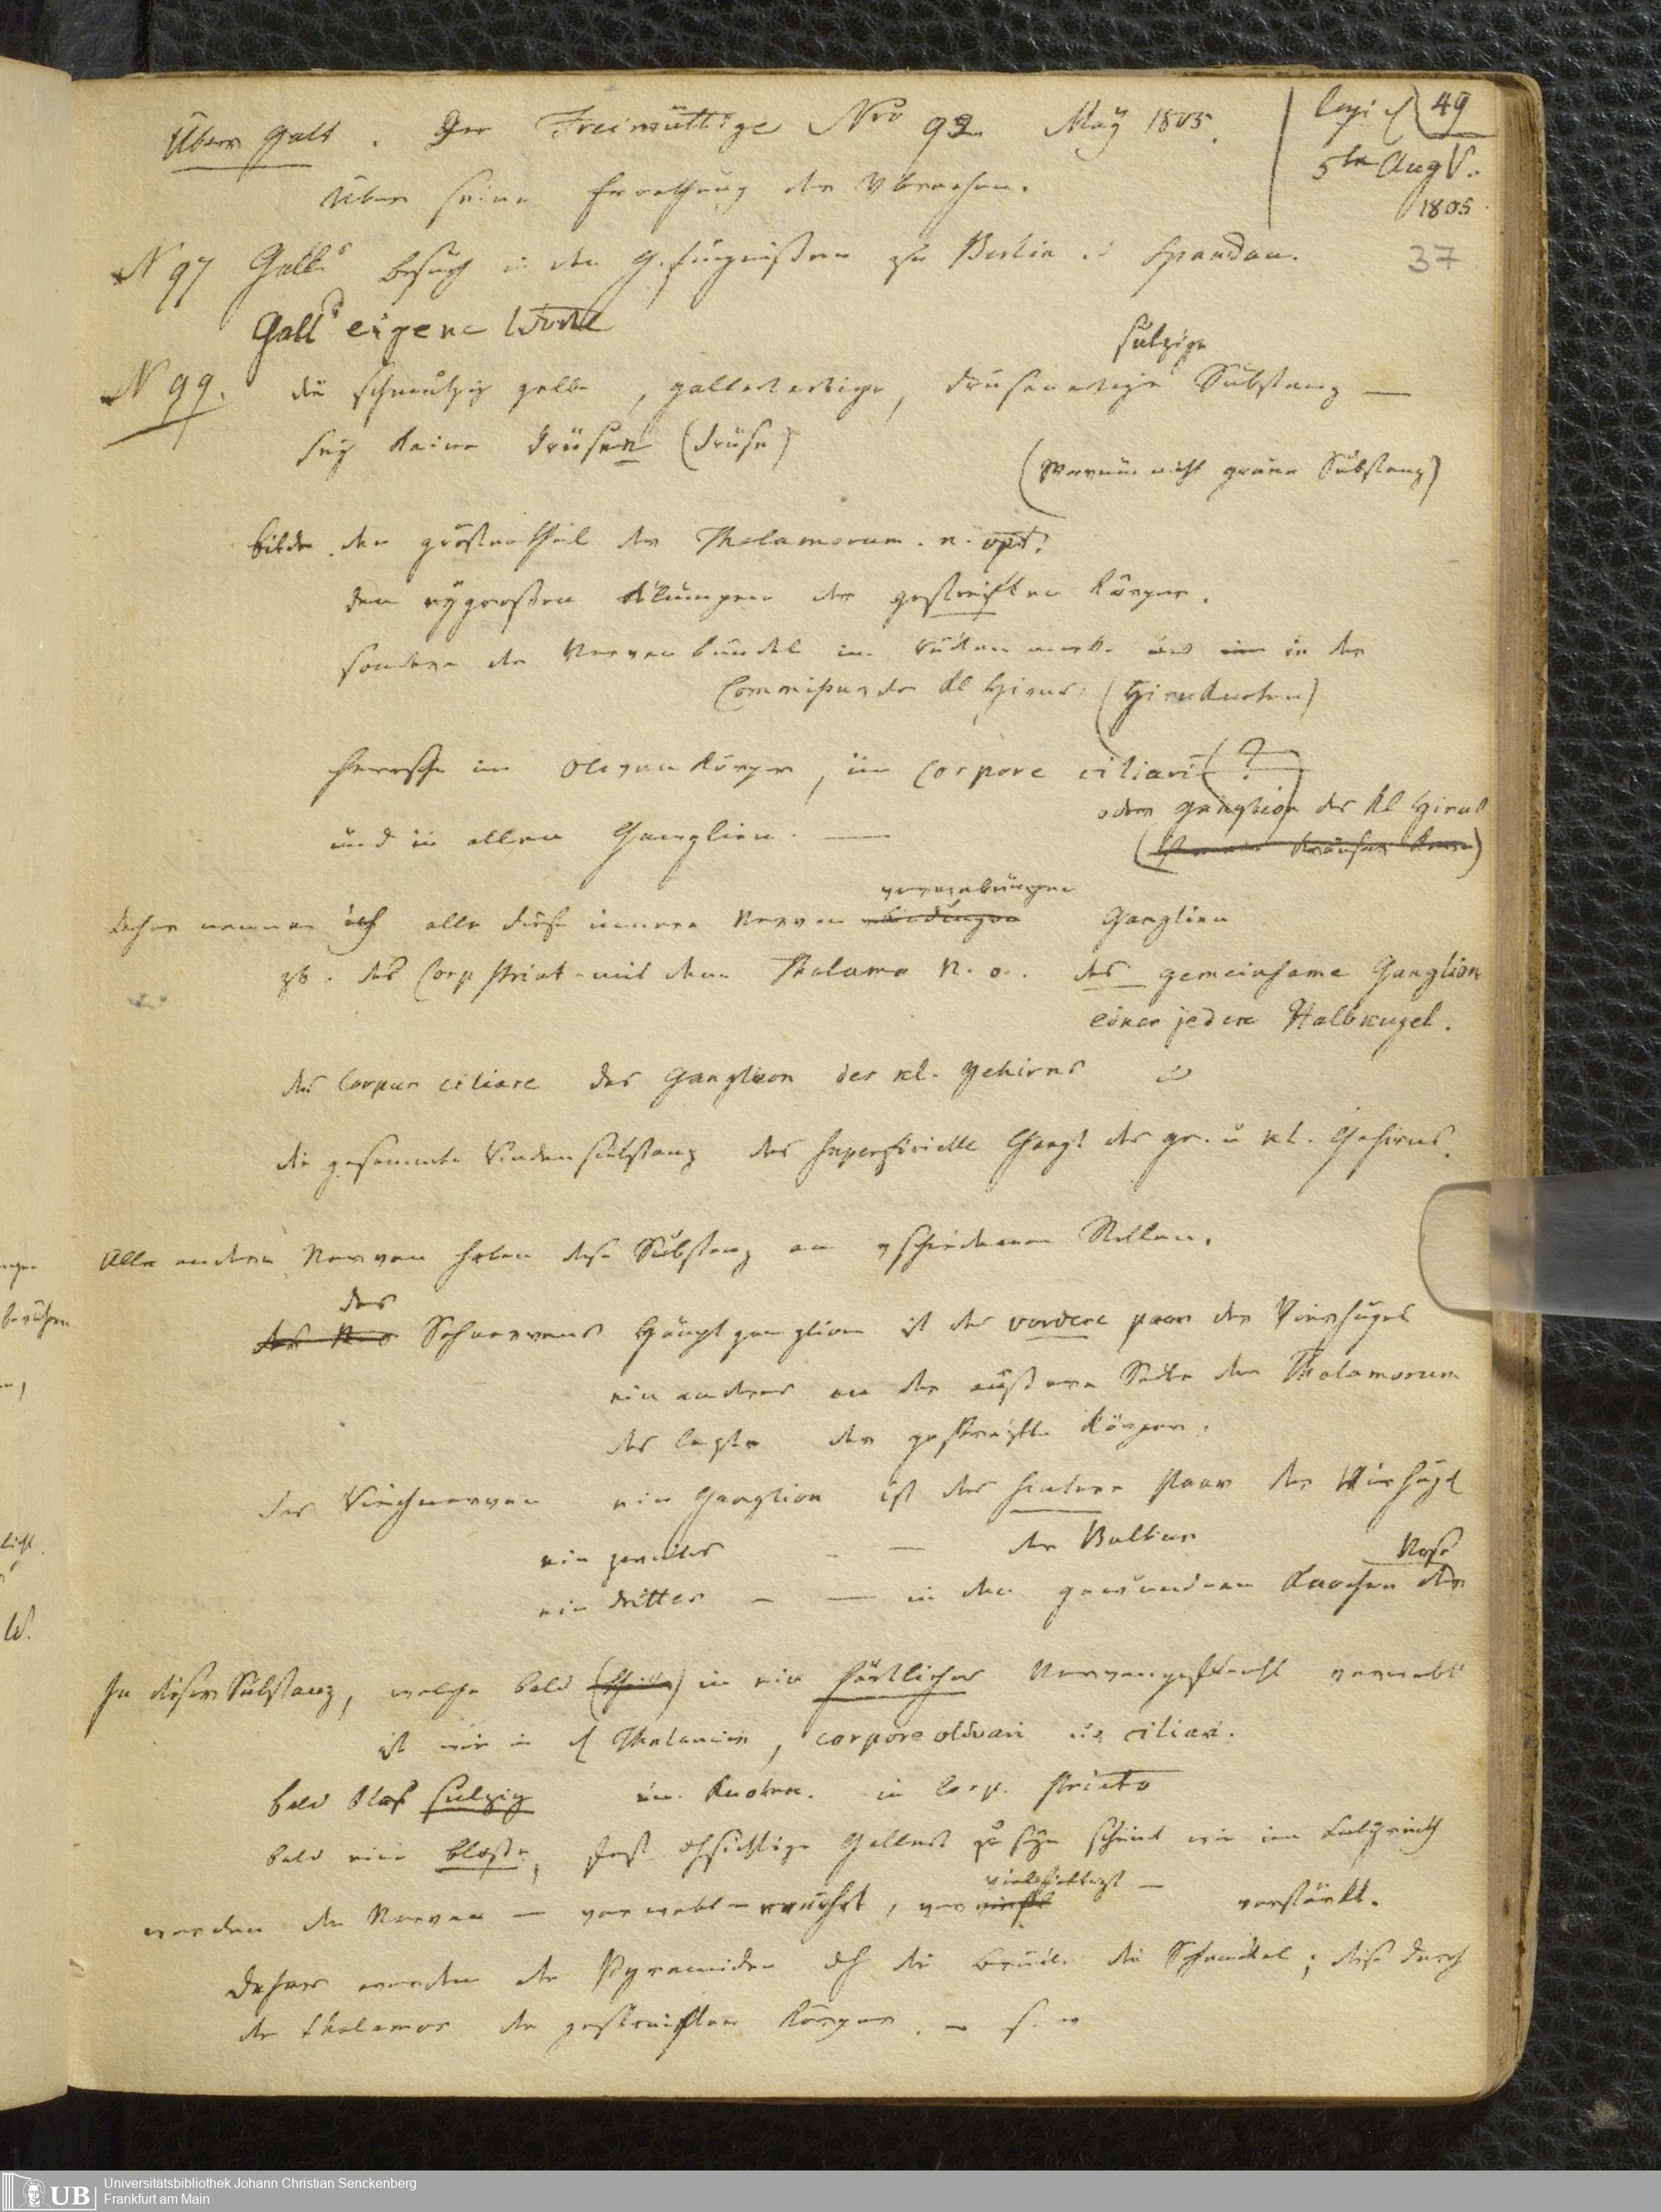 Über Gall. Der Freimüttige Nro 92 May 1805.
49
5te Aug
1805
37
Über seine Errathung der
N 97 Gall's besuch in den Gefängnißen zu Berlin u Spandau.
Gall's eigene Worte
sulzige
N 99. die schmutzig gelbe, gallertartige, drüsenartige Substanz —
sey keine Drüsen (Drüse)
(Warum nicht graue Substanz)
bilde den grösten theil der Thalamorum. n. opt.
den gestreiften Körper.
sondern die Nervenbündel im Rückenmark und in der
Commissur des kl Hirns (Hirnknoten)
herrsche im Olivenkörper, im Corpore ciliari (?)
oder ganglion des kl Hirns
und in allen Ganglien. —
Daher nenne ich alle diese innere Nerven Ganglien
zb. das Corp striat. mit dem Thalamo N. o. das gemeinsame Ganglion
einer jeden Halbkugel.
das Corpus ciliare das Ganglion des kl. Gehirns u
die gesammte Rindensubstanz das superficielle Gangl des gr. u kl. Gehirns.
Alle andern Nerven haben diese Substanz an vschiedenen Stellen.
des
des N o Sehnervens Hauptganglion ist das vordere paar der Vierhügel
ein anderes an der äußeren Seite der Thalamorum
das letzte der gestreifte Körper.
des Riechnerven ein Ganglion ist das hintere Paar der Vierhügel
ein zweites - — der Bulbus
Nase
ein drittes - — in den gewundenen Knochen der
In dieser Substanz, welche bald in ein härtliches Nervengeflecht verwebt
ist wie in d Thalamis, corpore olivari u ciliari.
bald blos sulzig im Knoten. in Corp. striato
bald eine bloße, fast dhsichtige Gallert zu seyn scheint wie im Labyrinth
vielfältigt —
werden die Nerven — verwebt — vermehrt, ver verstärkt.
Daher werden die Pyramiden dh die brücke die Schenkel; diese durch
die thalamos die gestreiften Körper. — s. w
UB Universitätsbibliothek Johann Christian Senckenberg
Frankfurt am Main